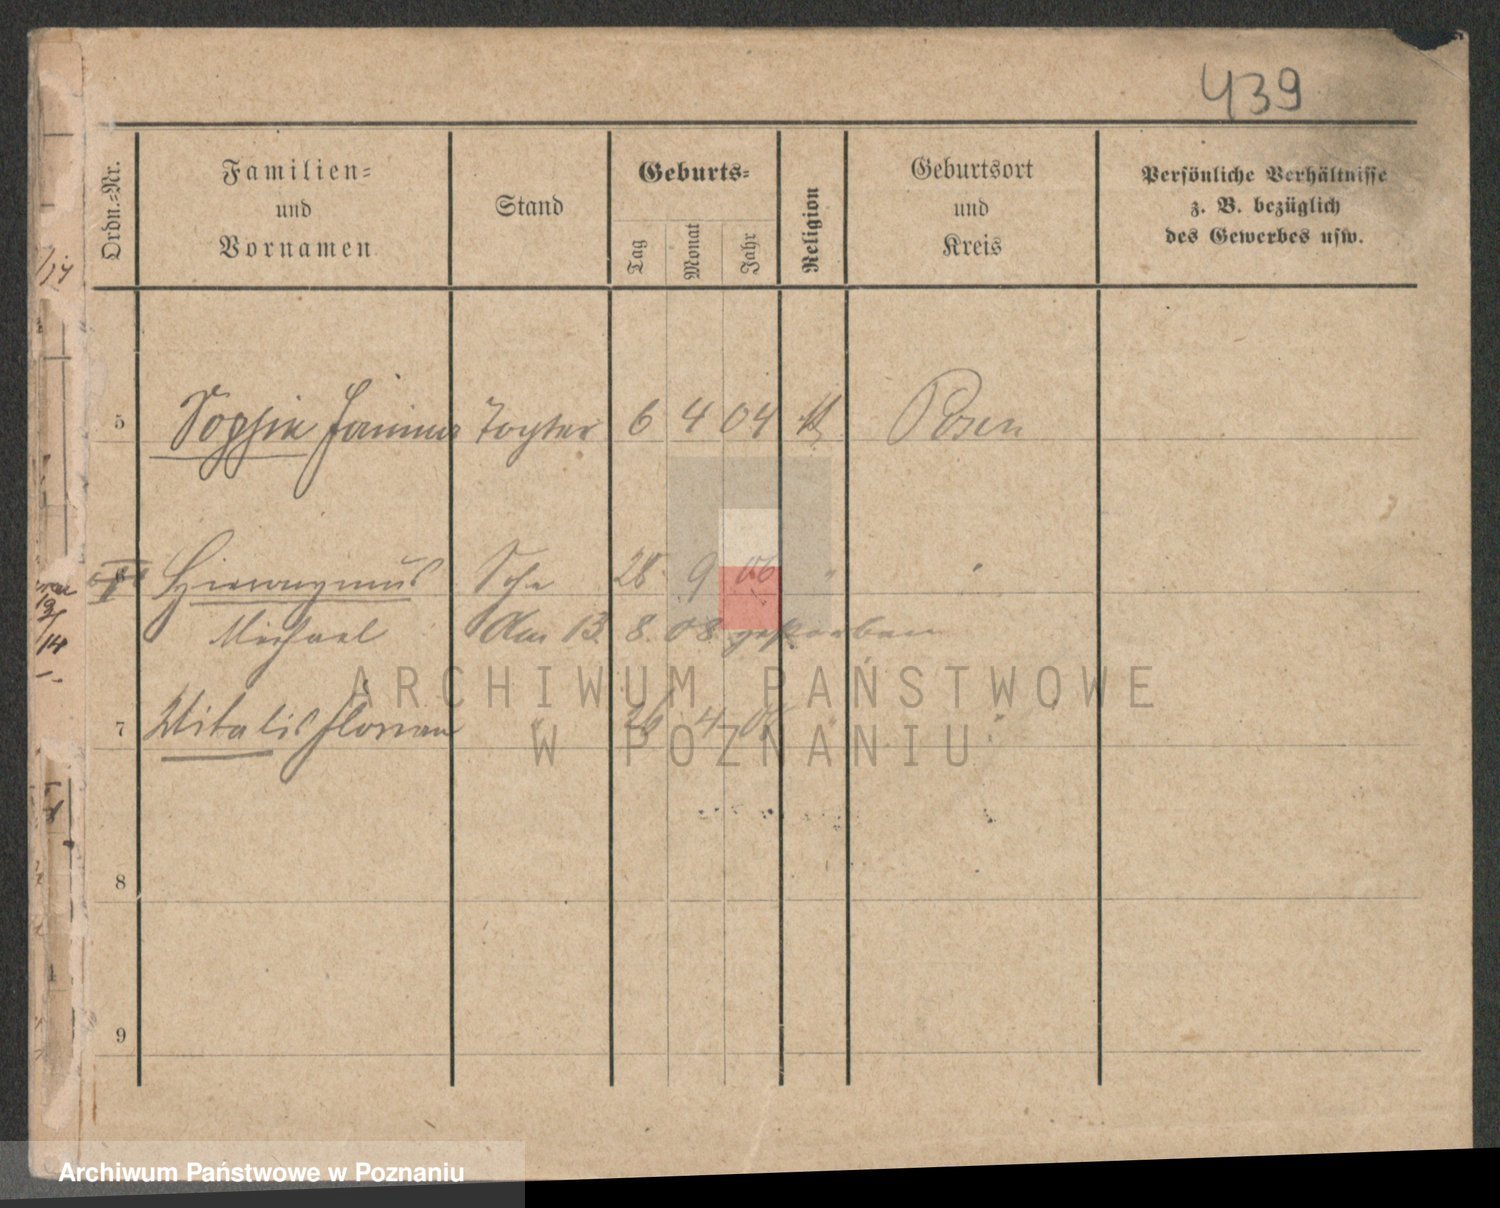 439
Ordn.-Nr.
Familien-
und
Vornamen
Stand
Geburts-
Tag
Monat
Jahr
Religion
Geburtsort
und
Kreis
Persönliche Verhältnisse
z. B. bezüglich
des Gewerbes usw.
5 Sophie Janina Tochter 6 4 04 Posen
6 Hieronymus 28 9 06 "
Michael Am 13. 8. 08 gestorben
7 Witalis Florian " 26 4 " "
8
9
ARCHIWUM PAŃSTWOWE
W POZNANIU
Archiwum Państwowe w Poznaniu